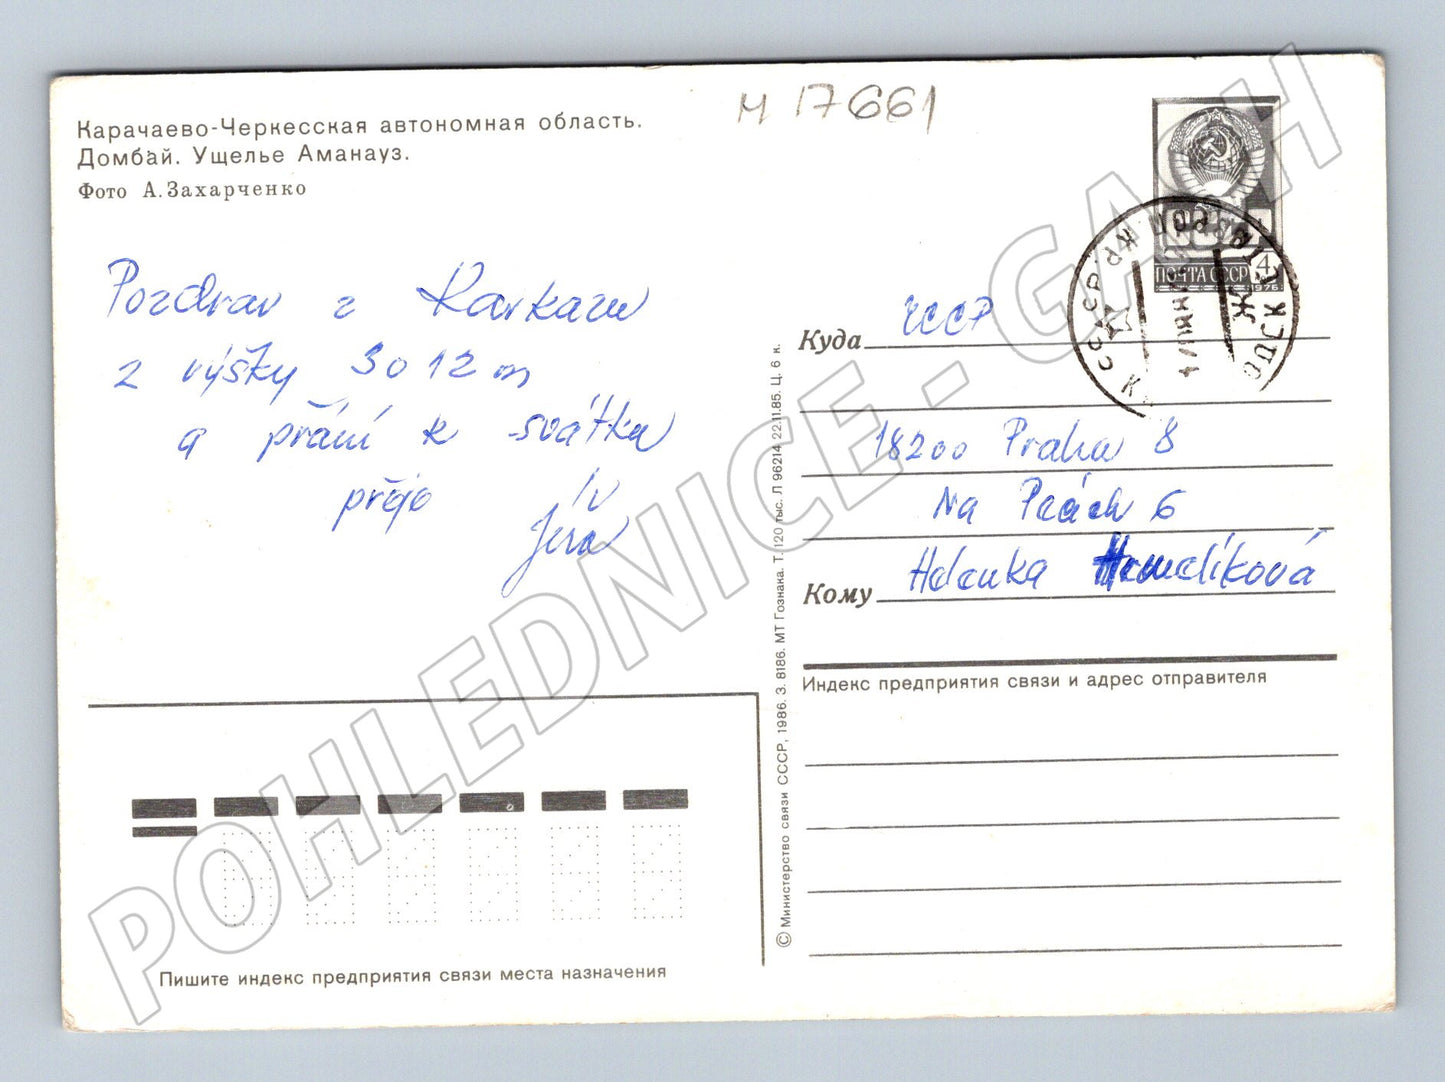 Карачаево-Черкесская автономная область.
Домбай. Ущелье Аманауз.
Фото А. Захарченко
М 17661
Pozdrav z Kavkazu
z výšky 3012 m
a přání k svátku
přeje
ПОЧТА СССР 4
1976
Куда ЧССР
18200 Praha 8
Na
6
Кому Helenka
Индекс предприятия связи и адрес отправителя
© Министерство связи СССР, 1986. З. 8186. МТ Гознака. Т. 120 тыс. Л 96214 22.11.85. Ц. 6 к.
Пишите индекс предприятия связи места назначения
POHLEDNICE - GACH